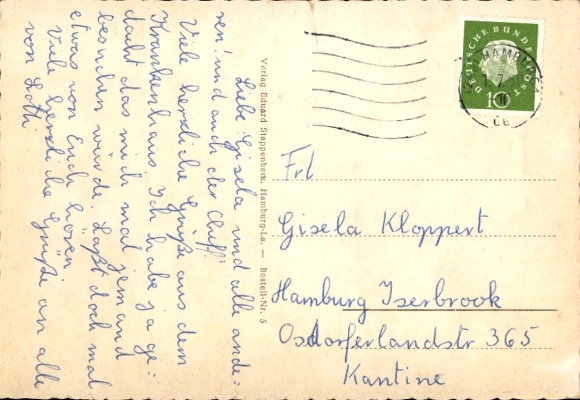 Liebe Gisela und alle ande=
ren! und auch der Chiff!
Viele herzliche Grüße aus dem
Krankenhaus. Ich habe ja ge=
dacht das mich mal jemand
besuchen würde. Laßt doch mal
etwas von Euch hören
Viele herzliche Grüße an alle
von Lotti
Verlag Eduard Stappenbeck, Hamburg-La. — Bestell-Nr. 5
DEUTSCHE BUNDESPOST
10
HAMBURG
Frl
Gisela Kloppert
Hamburg Iserbrook
Osdorferlandstr 365
Kantine